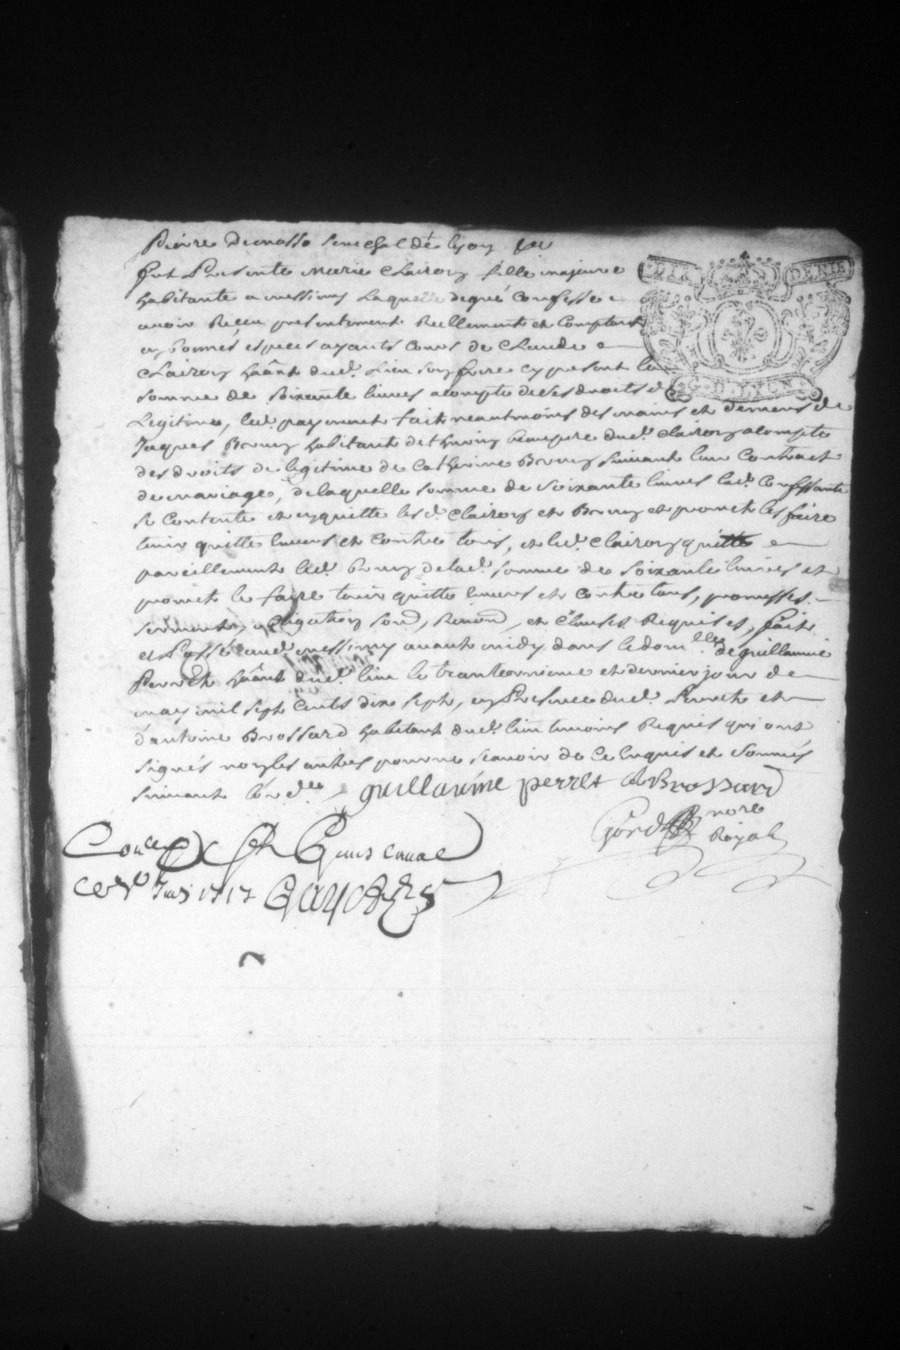 Pierre Dumasso senechal de Lyon
fut Presente Marie Clairoy fille majeure
habitante a messimy Laquelle de gré Confesse
avoir Receu presentement Reellement et Comptant
en bonnes especes ayants Cours de Claude
Clairoy hãant dud. Lieu son frere cy present la
somme de Soixante livres a compte de ses droits de
Legitime, led. payement fait neantmoins des mains et deniers de
Jaques Bruny habitant de Thurin beaupere dud. Clairoy a compte
des droits de legitime de Catherine Bruny suivant leur Contract
de mariage, de laquelle somme de Soixante livres lad. Confessante
se Contente et en quitte les d. Clairoy et Bruny et promet les faire
tenir quitte envers et contre tous, et led. Clairoy quitte
pareillement led. Bruny de lad. somme de soixante livres et
promet le faire tenir quitte envers et contre tous, promesses
serments, obligation, soub, Renon, et Clauses Requises, fait
et Passé aud. messimy avant midy dans le dom.lle de guillaume
Perret hãant dud. lieu le trente unieme et dernier jour de
may mil sept Cents dix sept, en Presence dud. Perret et
d'antoine Brossard habitant dud. lieu temoins Requis qui ont
signés non les autres pour ne scavoir de Ce Enquis et Sommés
suivant l'ord.ce guillaume perret A Brossard
nore
Royal
Conc
ce Juin 1717
DIX DENIE
D LYON